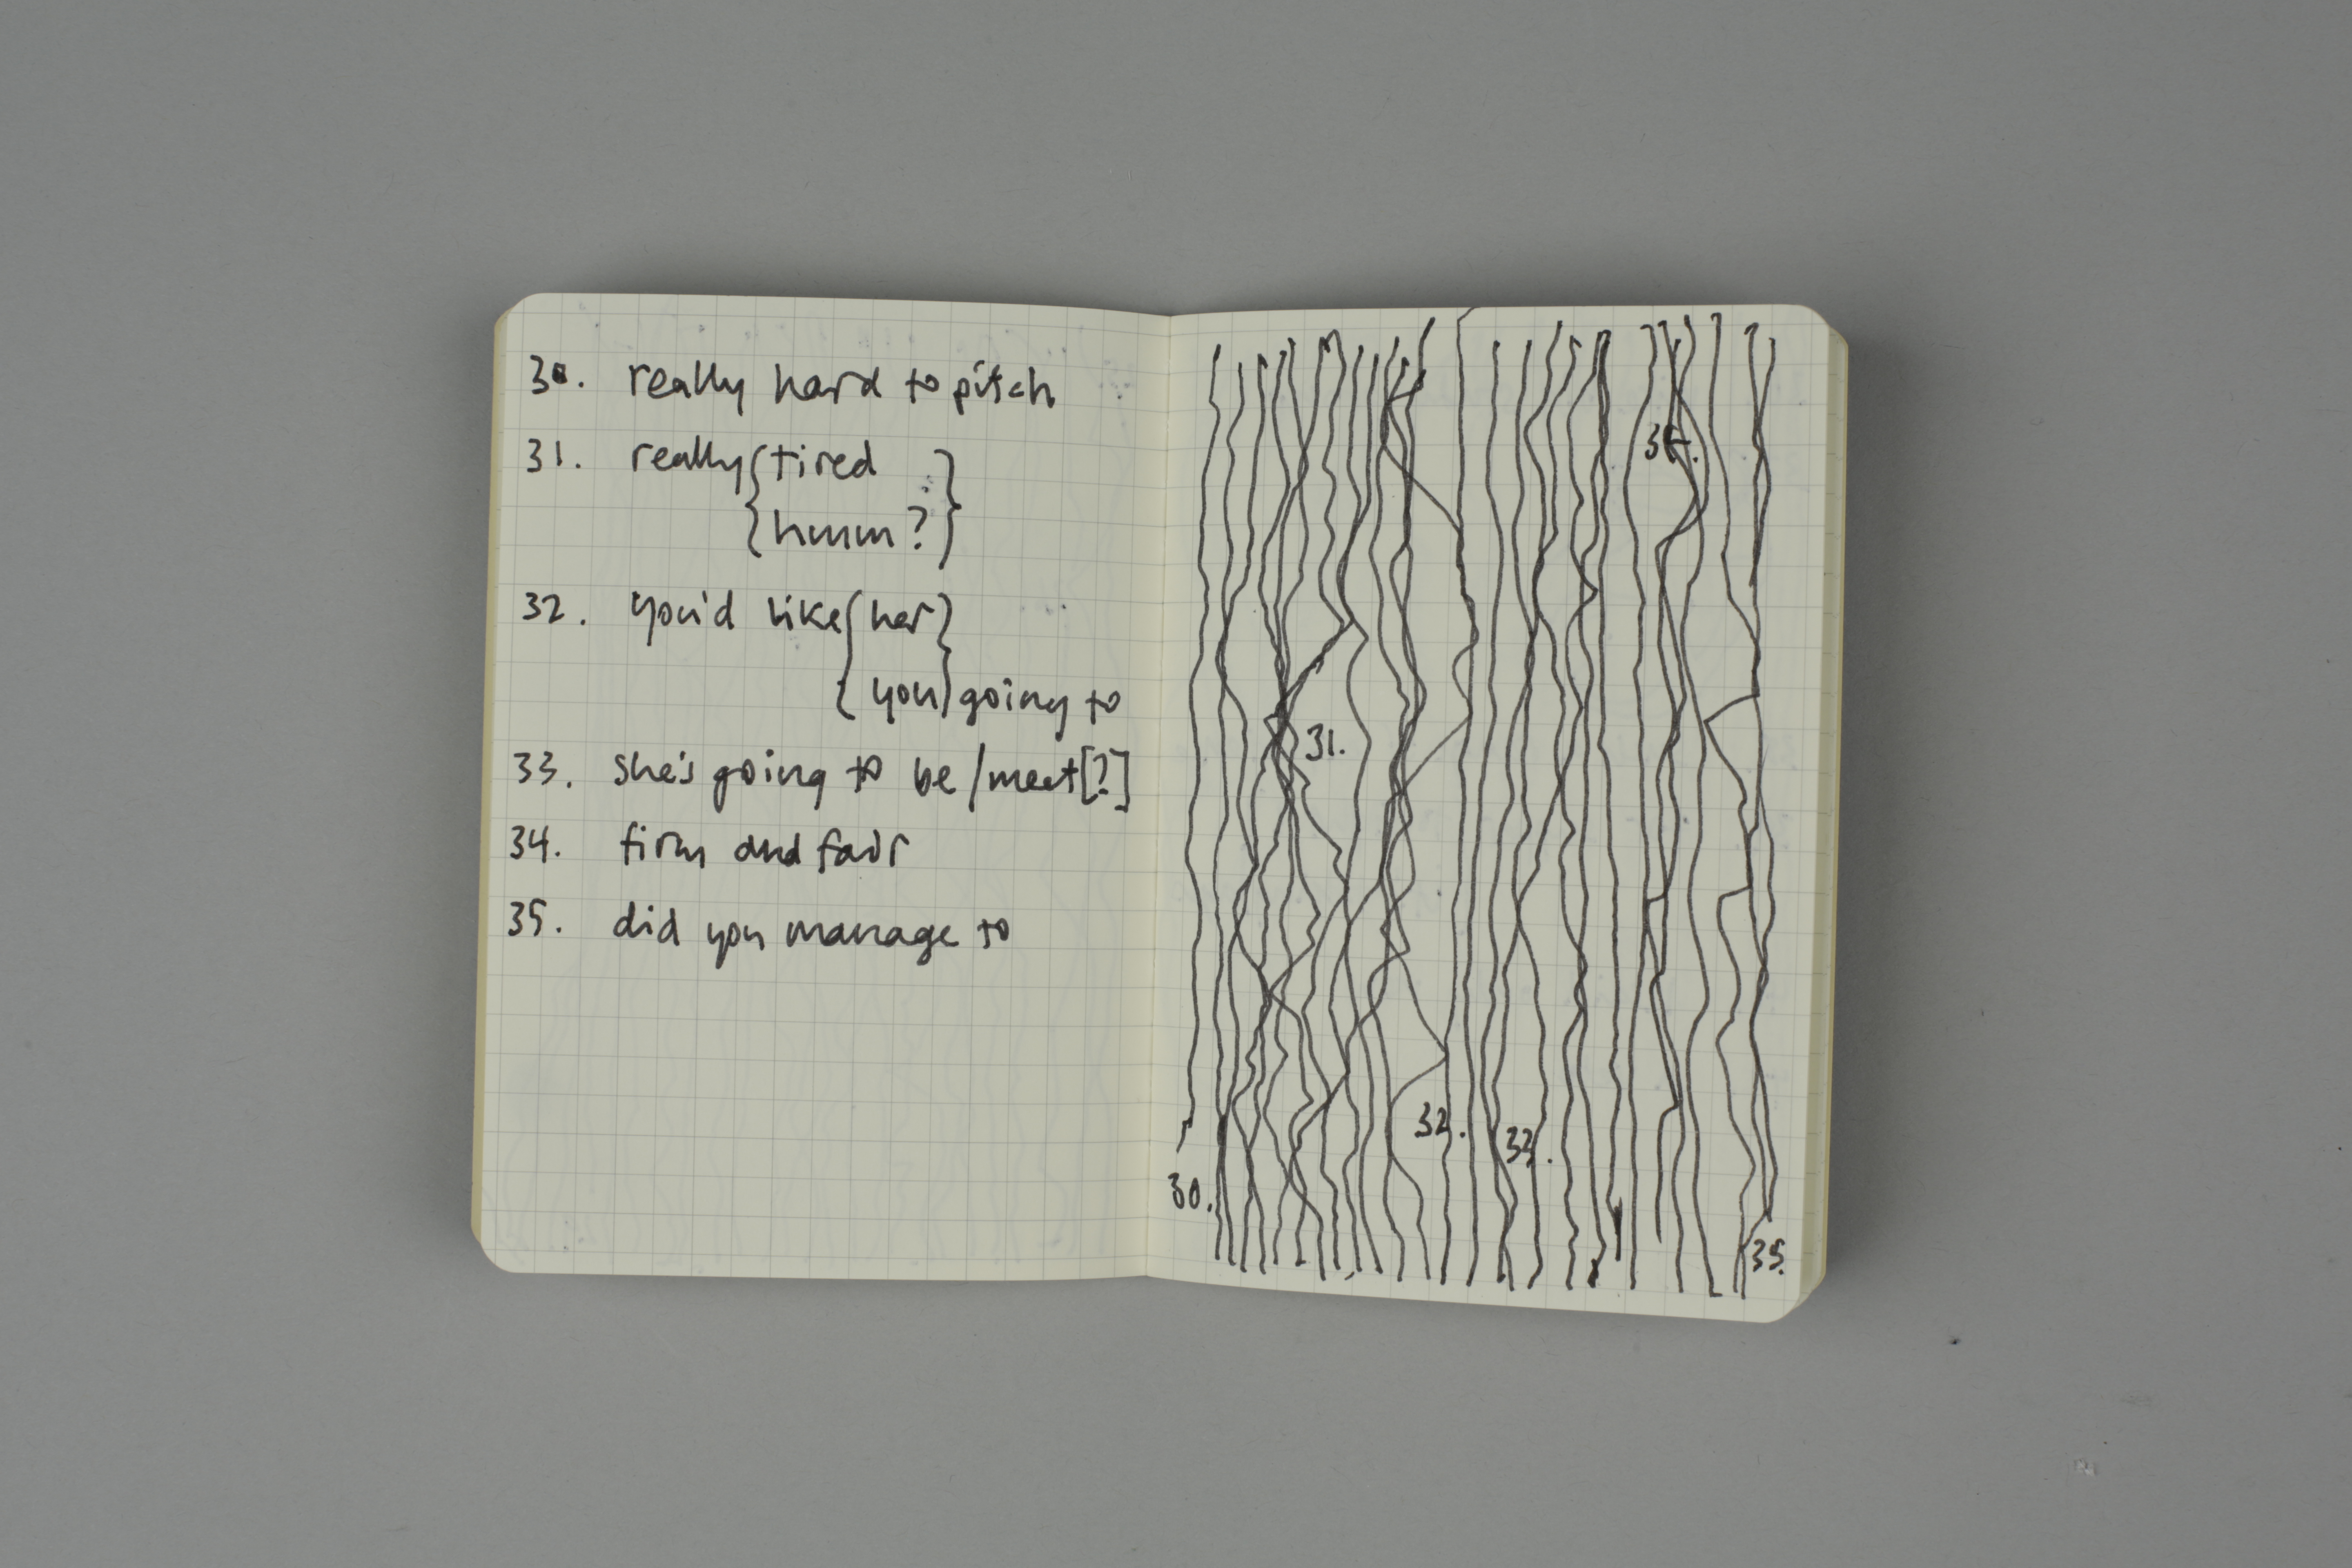 30. really hard to pitch
31. really { tired }
{ hmm? }
32. you'd like { her }
{ you } going to
33. she's going to be/meet[?]
34. firm and fair
35. did you manage to
34.
31.
32.
33.
30.
35.